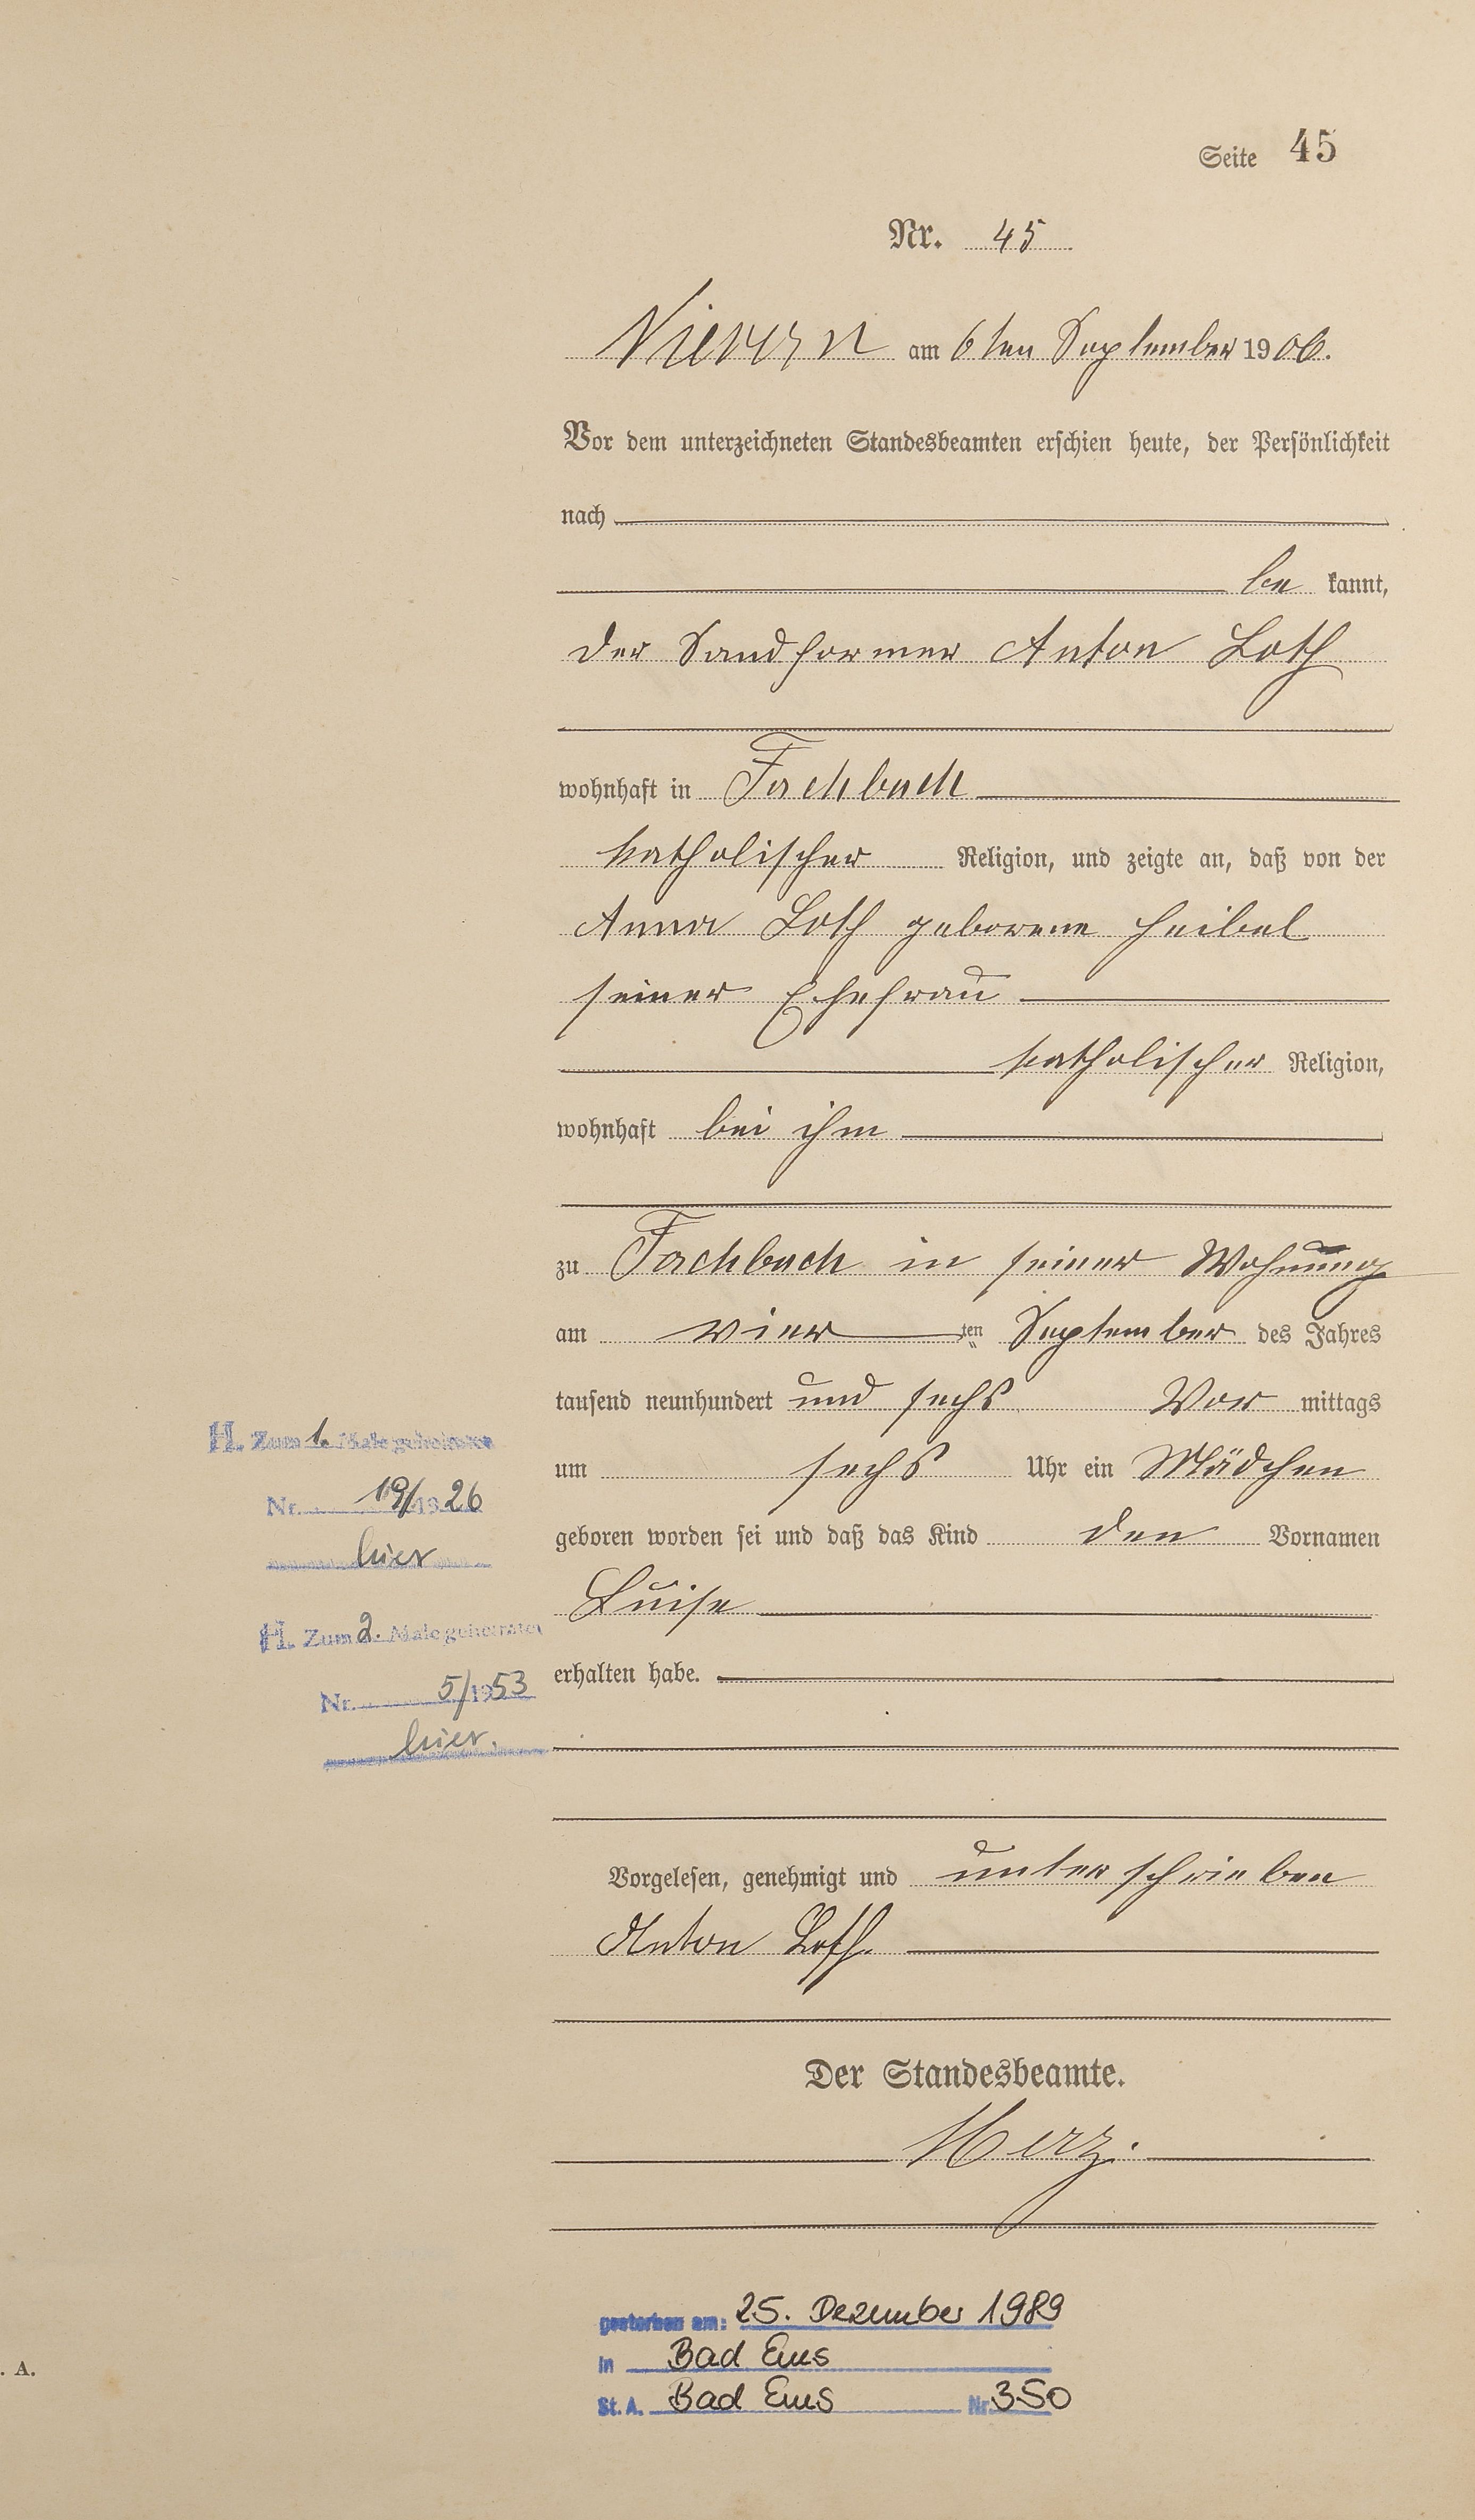 Seite 45
Nr. 45
Nievern am 6ten September 1906.
Vor dem unterzeichneten Standesbeamten erschien heute, der Persönlichkeit
nach
be kannt,
der Sandformer Anton Loth
wohnhaft in Fachbach
katholischer Religion, und zeigte an, daß von der
Anna Loth geborene Heibel
seiner Ehefrau
katholischer Religion,
wohnhaft bei ihm
zu Fachbach in seiner Wohnung
am vier ten September des Jahres
tausend neunhundert und sechs Vor mittags
um sechs Uhr ein Mädchen
geboren worden sei und daß das Kind den Vornamen
Luise
erhalten habe.
Vorgelesen, genehmigt und unterschrieben
Anton Loth.
Der Standesbeamte.
Herz.
H. Zum 1. Male geheiratet
Nr. 19/1926
hier
H. Zum 2. Male geheiratet
Nr. 5/1953
hier.
gestorben am: 25. Dezember 1989
in Bad Ems
St. A. Bad Ems Nr. 350
. A.